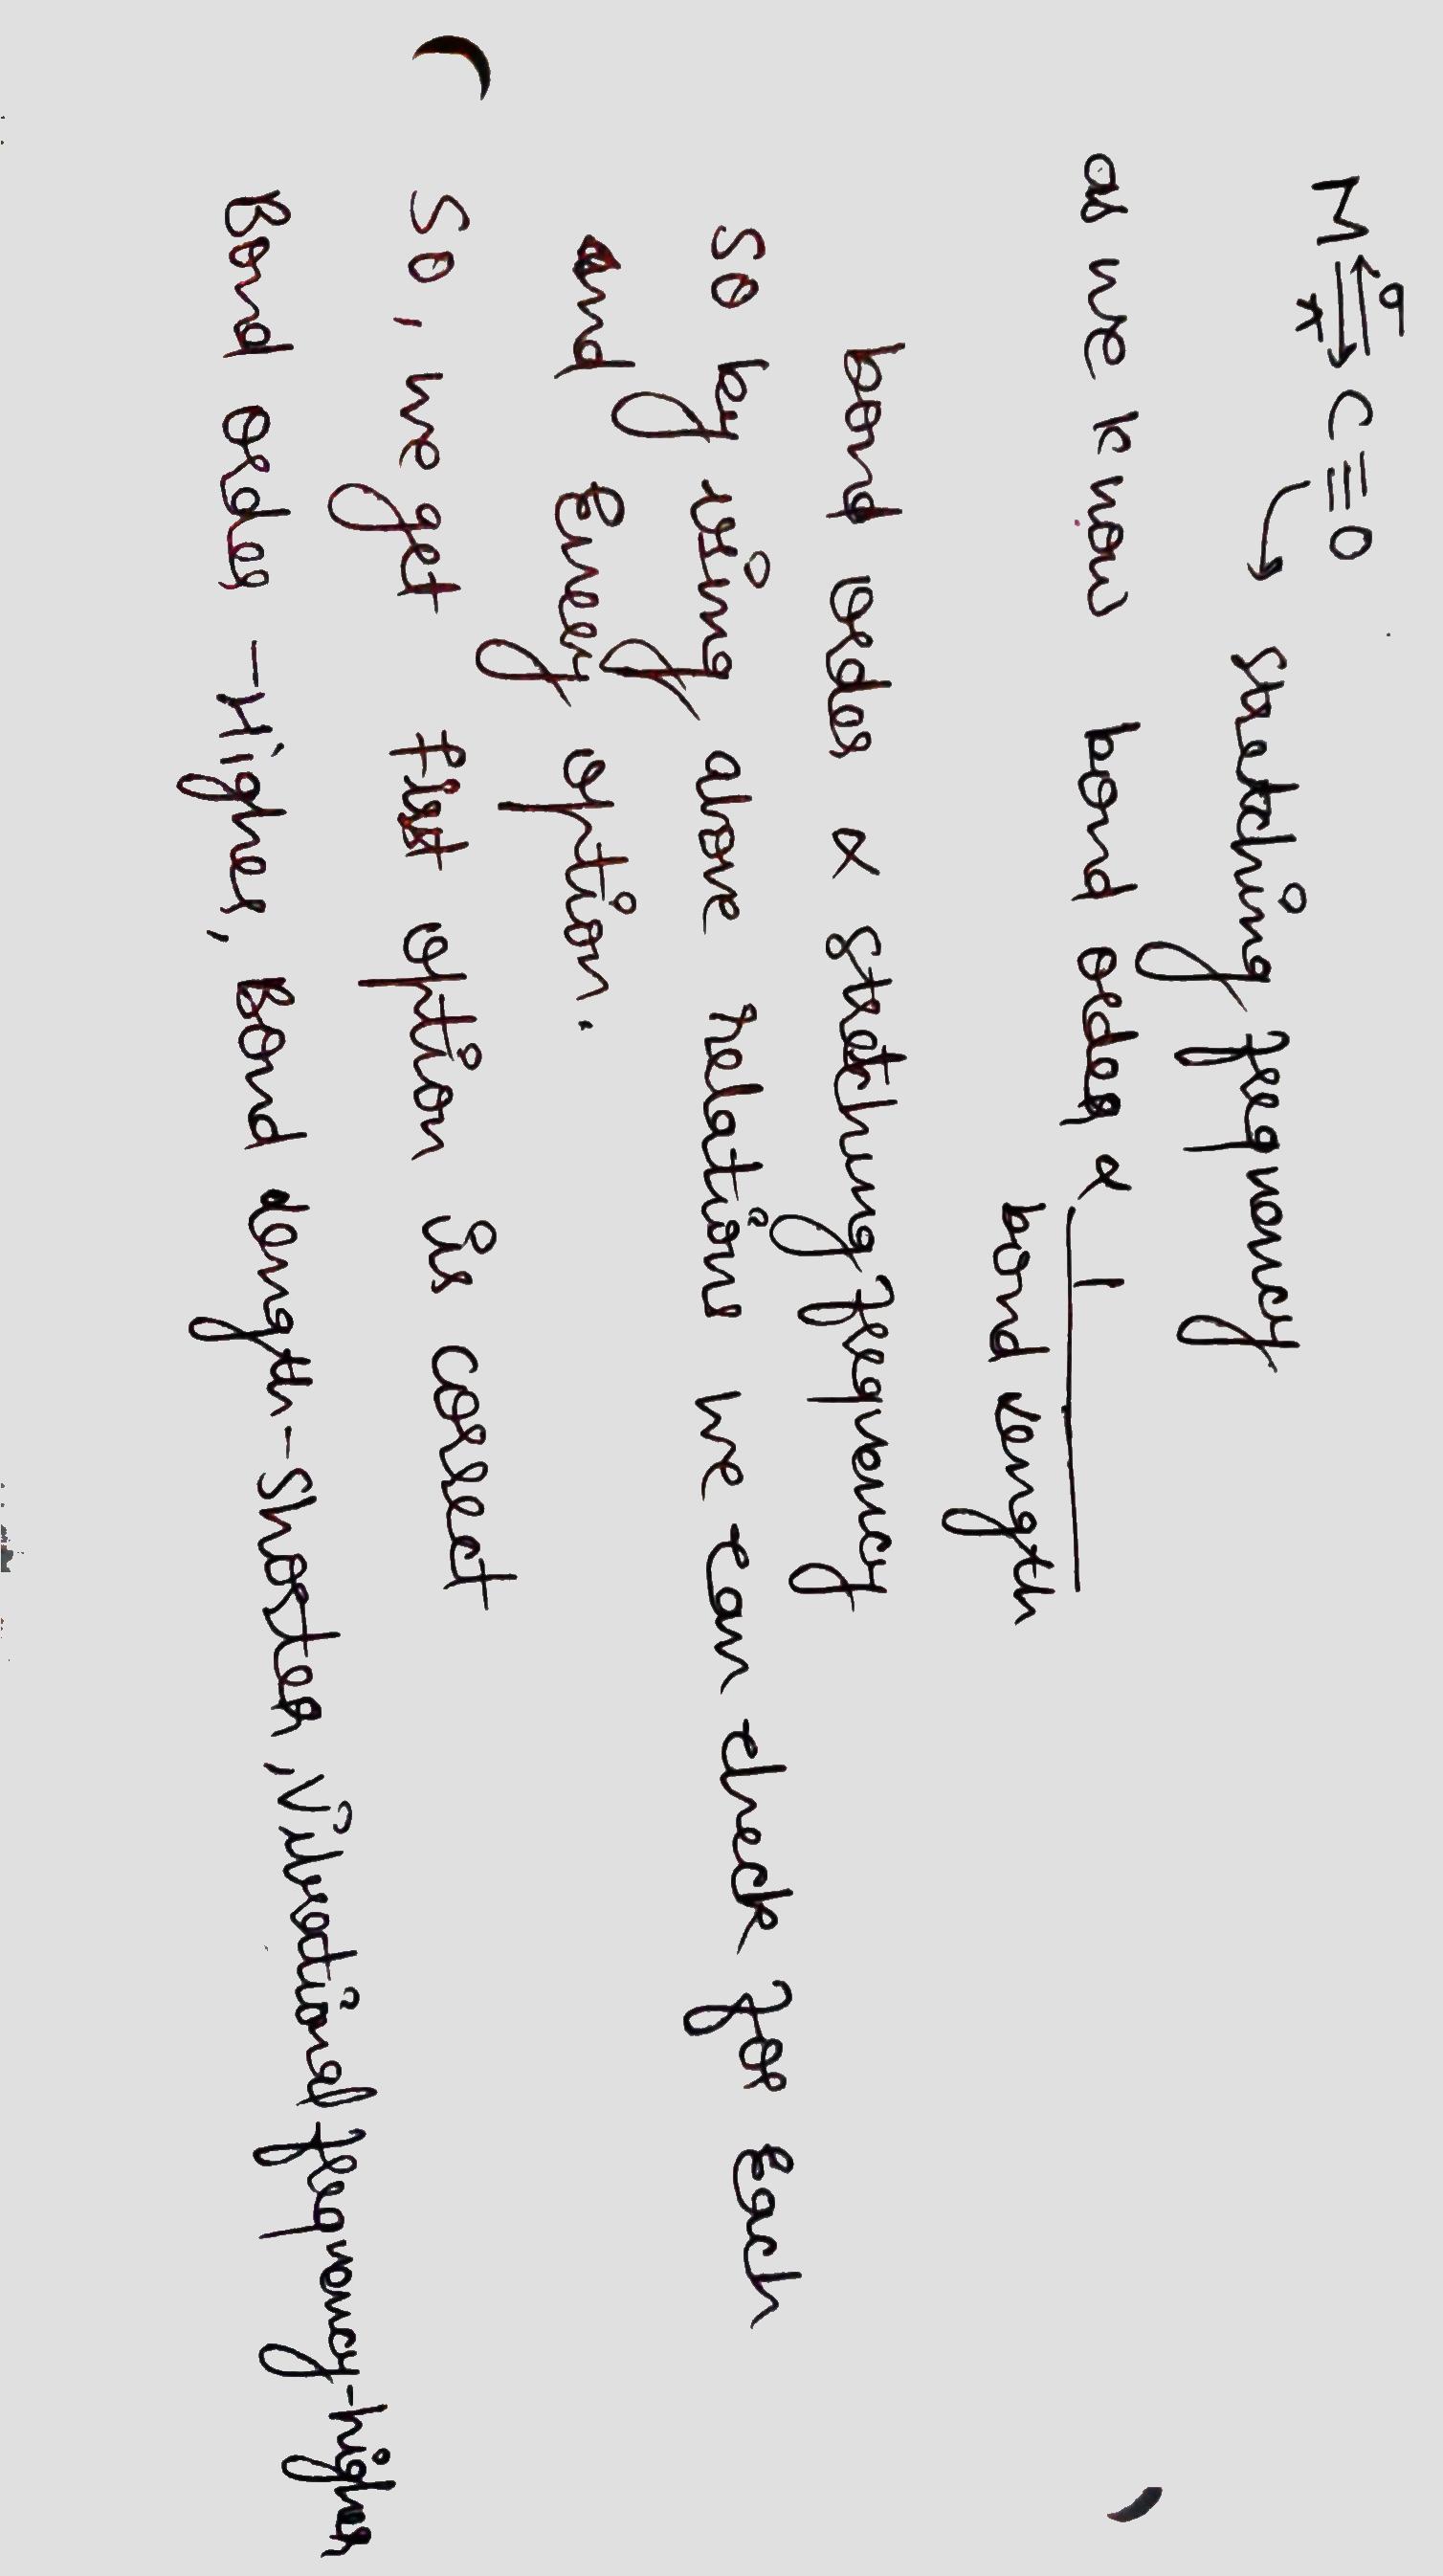 M ⇌ C≡O
σ
π
stretching frequency
as we know bond order α 1
bond length
bond order α stretching frequency
so by using above relations we can check for Each
and Every option.
So, we get first option is correct
Bond order - Higher, Bond length - Shorter, Vibrational frequency - higher